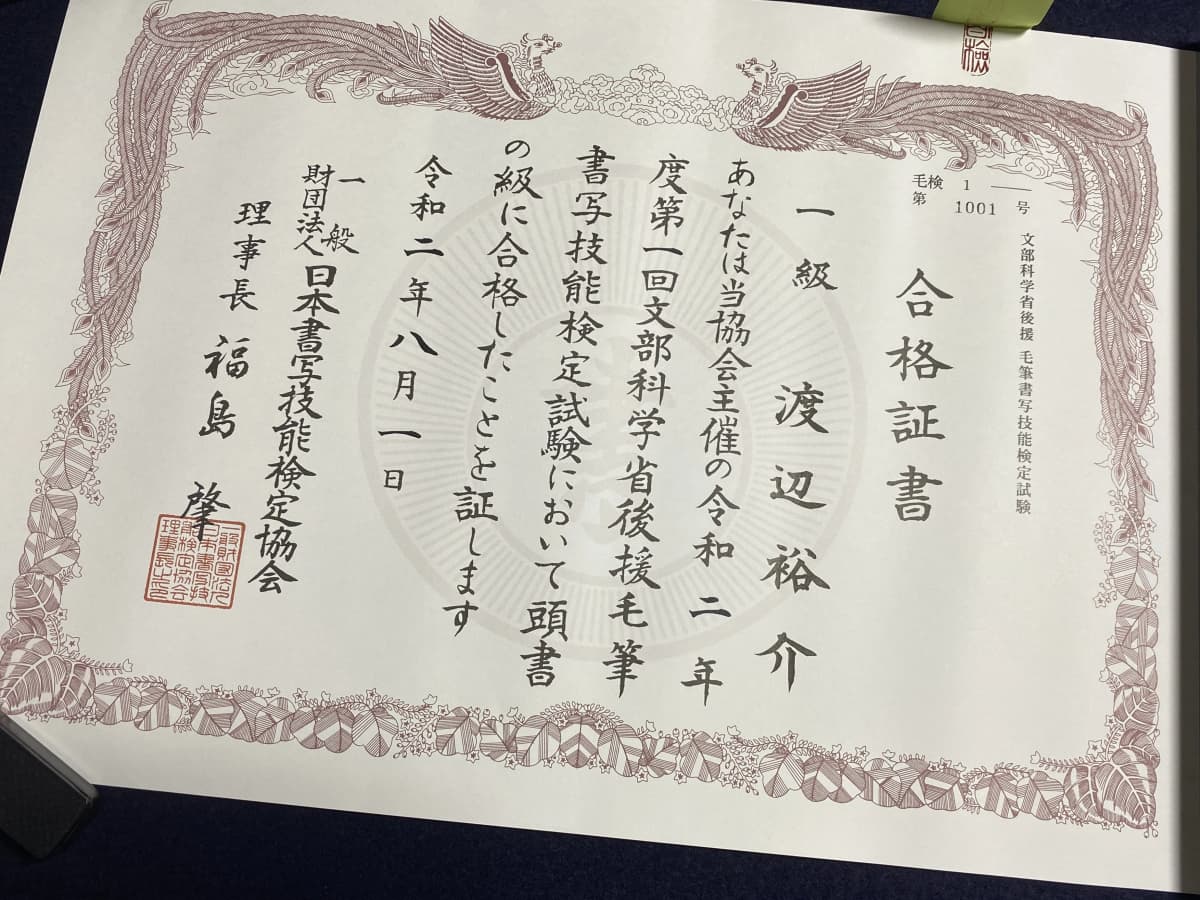 毛検 1 ——
第 1001 号
文部科学省後援 毛筆書写技能検定試験
合格証書
一級 渡辺裕介
あなたは当協会主催の令和二年
度第一回文部科学省後援毛筆
書写技能検定試験において頭書
の級に合格したことを証します
令和二年八月一日
一般
財団法人 日本書写技能検定協会
理事長 福島 肇
一般財団法人
日本書写技
能検定協会
理事長之印